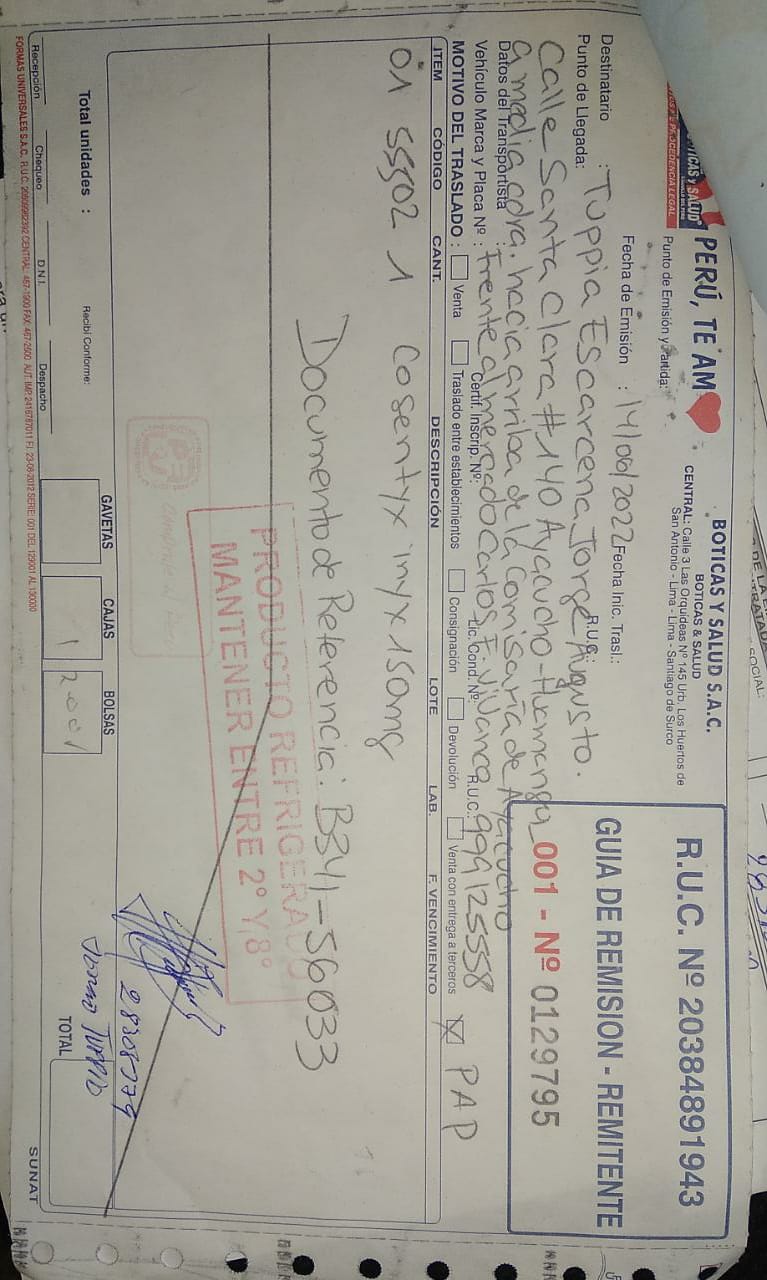 BOTICAS Y SALUD
PERÚ, TE AM
BOTICAS Y SALUD S.A.C.
BOTICAS & SALUD
CENTRAL: Calle 3 Las Orquídeas Nº 145 Urb. Los Huertos de
San Antonio - Lima - Lima - Santiago de Surco
R.U.C. Nº 20384891943
GUIA DE REMISION - REMITENTE
001 - Nº 0129795
PROCEDENCIA LEGAL
Punto de Emisión y Partida:
Fecha de Emisión : 14/06/2022 Fecha Inic. Trasl.:
Destinatario : Tuppia Escarcena Jorge Augusto. R.U.C.:
Punto de Llegada:
Calle Santa Clara #140 Ayacucho-Huamanga
a media cdra. hacia arriba de la Comisaría de Ayacucho
Datos del Transportista :
Frente al mercado Carlos F. Vivanco 999125558
Vehículo Marca y Placa Nº : Certif. Inscrip. Nº: Lic. Cond. Nº R.U.C.:
MOTIVO DEL TRASLADO : Venta Traslado entre establecimientos Consignación Devolución Venta con entrega a terceros X PAP
ITEM CÓDIGO CANT. DESCRIPCIÓN LOTE LAB. F. VENCIMIENTO
01 55502 1 Cosentyx inyx150mg
Documento de Referencia: B341-56033
PRODUCTO REFRIGERADO
MANTENER ENTRE 2º Y 8º
28308779
GAVETAS CAJAS BOLSAS
Total unidades : Recibí Conforme: 1 TOTAL
Recepción Chequeo D.N.I. Despacho
SUNAT
FORMAS UNIVERSALES S.A.C.